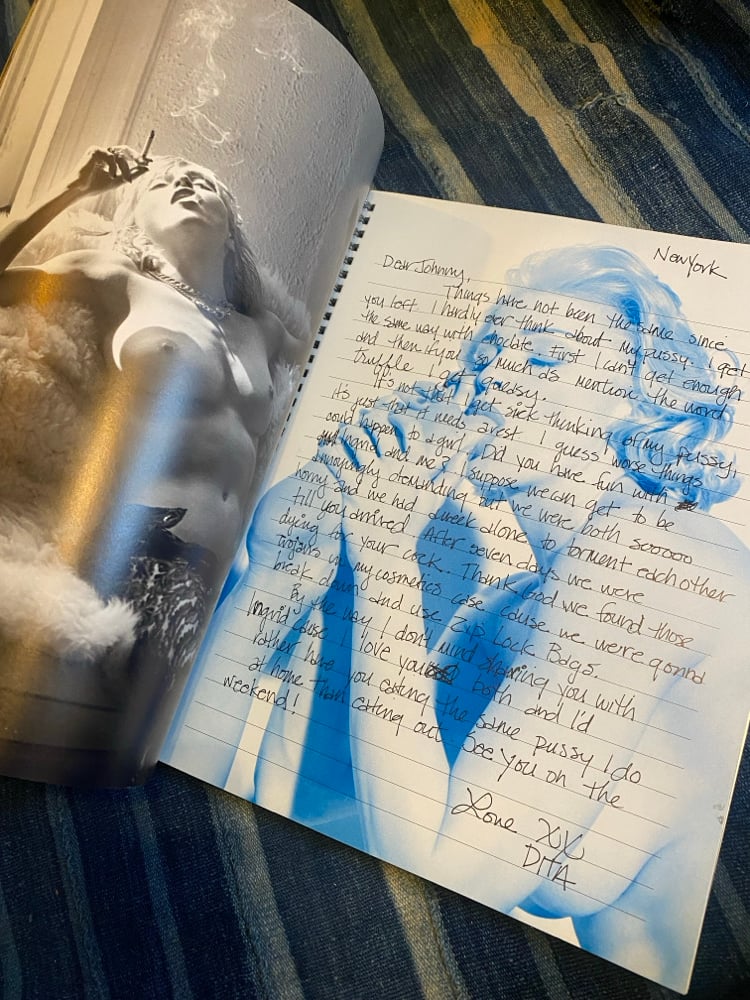 NewYork
Dear Johnny,
Things have not been the same since
you left. I hardly ever think about my pussy. I get
the same way with choclate. First I can't get enough
and then if you so much as mention the word
truffle I get queasy.
It's not that I get sick thinking of my pussy,
It's just that it needs a rest. I guess worse things
could happen to a girl. Did you have fun with
Ingrid and me? I suppose we can get to be
annoyingly demanding but we were both soooooo
horny and we had a week alone to torment each other
till you arrived. After seven days we were
dying for your cock. Thank God we found those
Trojans in my cosmetics case 'cause we were gonna
break down and use Zip Lock Bags.
By the way I don't mind sharing you with
Ingrid cause I love you both and I'd
rather have you eating the same pussy I do
at home than eating out. See you on the
weekend!
Love XX
DITA